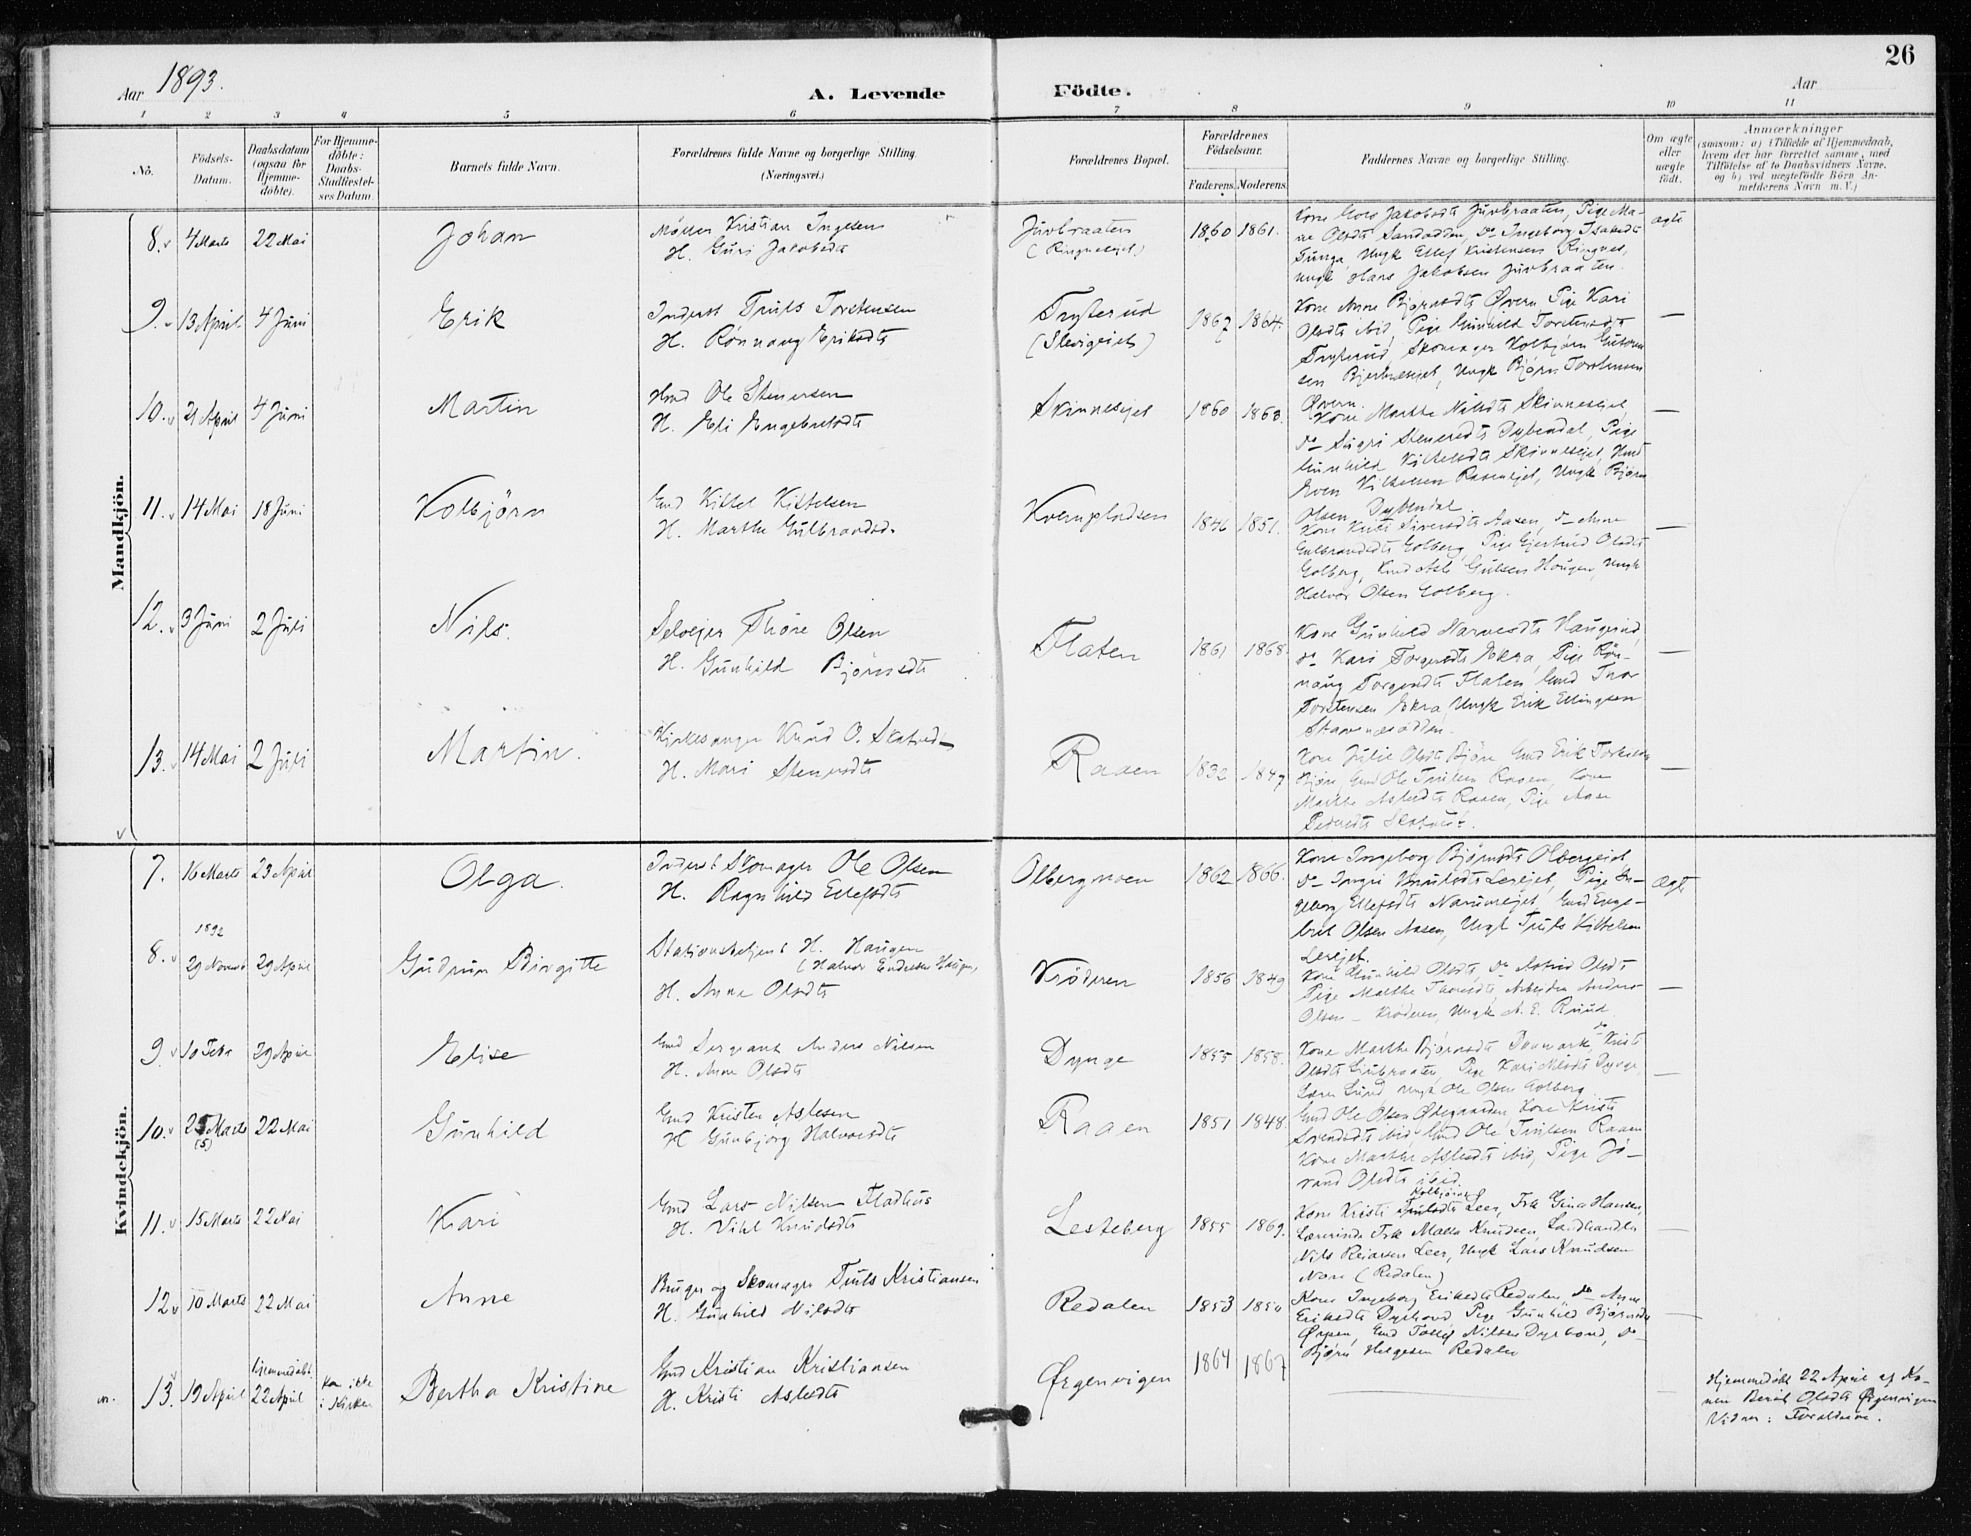 26
Aar 1893.
A. Levende Födte.
Aar
1 2 3 4 5 6 7 8 9 10 11
No.
Födsels-Datum.
Daabsdatum (ogsaa for Hjemme-döbte).
For Hjemme-döbte: Daabs-Stadfæstel-ses Datum.
Barnets fulde Navn.
Forældrenes fulde Navne og borgerlige Stilling. (Næringsvei.)
Forældrenes Bopæl.
Forældrenes Födselsaar.
Faderens. Moderens.
Faddernes Navne og borgerlige Stilling.
Om ægte eller uægte födt.
Anmærkninger
(saasom: a) i Tilfælde af Hjemmedaab, hvem der har forrettet samme, med Tilföielse af to Daabsvidners Navne, og b) ved uægtefödte Börn An-melderens Navn m. V.)
Mandkjön.
8. 4 Marts 22 Mai Johan
Møller Kristian Ingelsen
H. Guri Jakobsdt
Juvbraaten
(Ringnesejet)
1860 1861.
Kone Goro Jakobsdt Juvbraaten, Pige Ma-
Olsdt Sandodden, do Ingeborg Isaksdt
Gunga, Ungk Ellef Kristensen Ringnes,
Ungk Hans Jakobsen Juvbraaten.
ægte
9. 13 April 4 Juni Erik
Inderst Truls Torstensen
H. Rønnaug Eriksdt
Trytterud
(Slevigeiet)
1862 1864.
Kone Anne Bjørnsdt Øvern Pige Kari
Olsdt ibid, Pige Gunhild Torstensdt
Trytterud, Skomager Kolbjørn Guttorm
sen Bjertneseiet, Ungk Bjørn Torstensen
Øvern.
—
10. 21 April 4 Juni Martin
Hmd Ole Stenersen
H. Eli Engebretsdt
Skinneseiet
1860 1863.
Kone Marthe Nilsdt Skinneseiet,
do Sigri Stenersdt Dybendal, Pige
Gunhild Kittelsdt Skinneseiet, Hmd
Even Kittelsen Raaeneiet, Ungk Bjørn
Olsen Dybendal.
—
11. 14 Mai 18 Juni Kolbjörn
Gmd Kittel Kittelsen
H. Marthe Gulbrandsd.
Kvernpladsen
1846 1851.
Kone Kristi Siversdt Aasen, do Anne
Gulbrandsdt Golberg, Pige Gjertrud Olsdt
Golberg, Gmd Asle Gulsen Haugen, Ungk
Halvor Olsen Golberg.
—
12. 3 Juni 2 Juli Nils.
Selvejer Thore Olsen
H. Gunhild Bjørnsdt
Flaten
1861 1868.
Kone Gunhild Narvesdt Haugerud,
do Kari Torgersdt Ekra, Pige Røn-
naug Torgersdt Flaten, Gmd Thor
Torstensen Ekra, Ungk Erik Ellingsen
Stavnesodden.
—
13. 14 Mai 2 Juli Martin.
Kirkesanger Knud O. Skatvedt
H. Mari Stenersdt
Raaen
1832 1847
Kone Julie Olsdt Bjøre Gmd Erik Torkelsen
Bjøre, Gmd Ole Trulsen Raaen, Kone
Marthe Aslesdt Raaen, Pige Aase
Pedersdt Skatvedt.
—
Kvindekjön.
7. 16 Marts 23 April Olga.
Inderst Skomager Ole Olsen
H. Ragnhild Ellefsdt
Olbergmoen
1862 1866.
Kone Ingeborg Bjørnsdt Olbergeiet,
do Ingri Knudsdt Lereiet, Pige In-
geborg Ellefsdt Narumeiet, Gmd Enge-
bret Olsen Aasen, Ungk Truls Kittelsen
Lereiet.
Ægte
1892
8. 29 Novemb 29 April Gudrun Birgitte
Stationsbetjent H. Haugen
(Halvor Endresen Haugen)
H. Anne Olsdt
Krøderen
1856 1849
Kone Gunhild Olsdt, do Astrid Olsdt
Pige Marthe Thoresdt, Arbeider Anders
Olsen – Krøderen, Ungk A. E. Ruud.
—
9. 10 Febr 29 April Elise
Gmd Sergeant Anders Nilsen
H. Anne Olsdt
Dynge
1855 1858.
Kone Marthe Bjørnsdt Danmark do Kristi
Olsdt Gubraaten, Pige Kari Nilsdt Dynge,
Lund Ungk Ole Olsen Golberg
—
10. 25 Marts 22 Mai Gunhild
(5)
Gmd Kristen Aslesen
H Gunbjørg Halvorsdt
Raaen
1851 1848.
Gmd Ole Olsen Ødegaarden, Kone Kristi
Svendsdt ibid, Gmd Ole Trulsen Raaen
Kone Marthe Aslesdt ibid, Pige Jø-
rand Olsdt ibid.
11. 15 Marts 22 Mai Kari
Gmd Lars Nilsen Fladhus
H. Vibl Knudsdt
Lesteberg
1855 1869.
Kolbjørns
Kone Kristi Trulsdt Leer, Frk Gina Hansen,
Lærerinde Frk Malla Knudsen, Landhandler
Nils Reiarsen Leer, Ungk Lars Knudsen
Nore (Redalen)
—
12 10 Marts 22 Mai Anne
Bruger og Skomager Truls Kristiansen
H. Gunhild Nilsdt
Redalen
1853 1850
Kone Ingeborg Eriksdt Redalen, do Anne
Eriksdt Dyrhovd, Pige Gunhild Bjørnsdt
Ørpen, Gmd Tollef Nilsen Dyrhovd, do
Bjørn Helgesen Redalen
—
m. 13. 19 April Hjemmedøbt 22 April Kom ikke i Kirken Bertha Kristine
Gmd Kristian Kristiansen
H. Kristi Aslesdt
Ørgenvigen
1864 1867
—
Hjemmedøbt 22 April af Ko-
nen Berit Olsdt Ørgenvigen
Vidner: Forældrene.